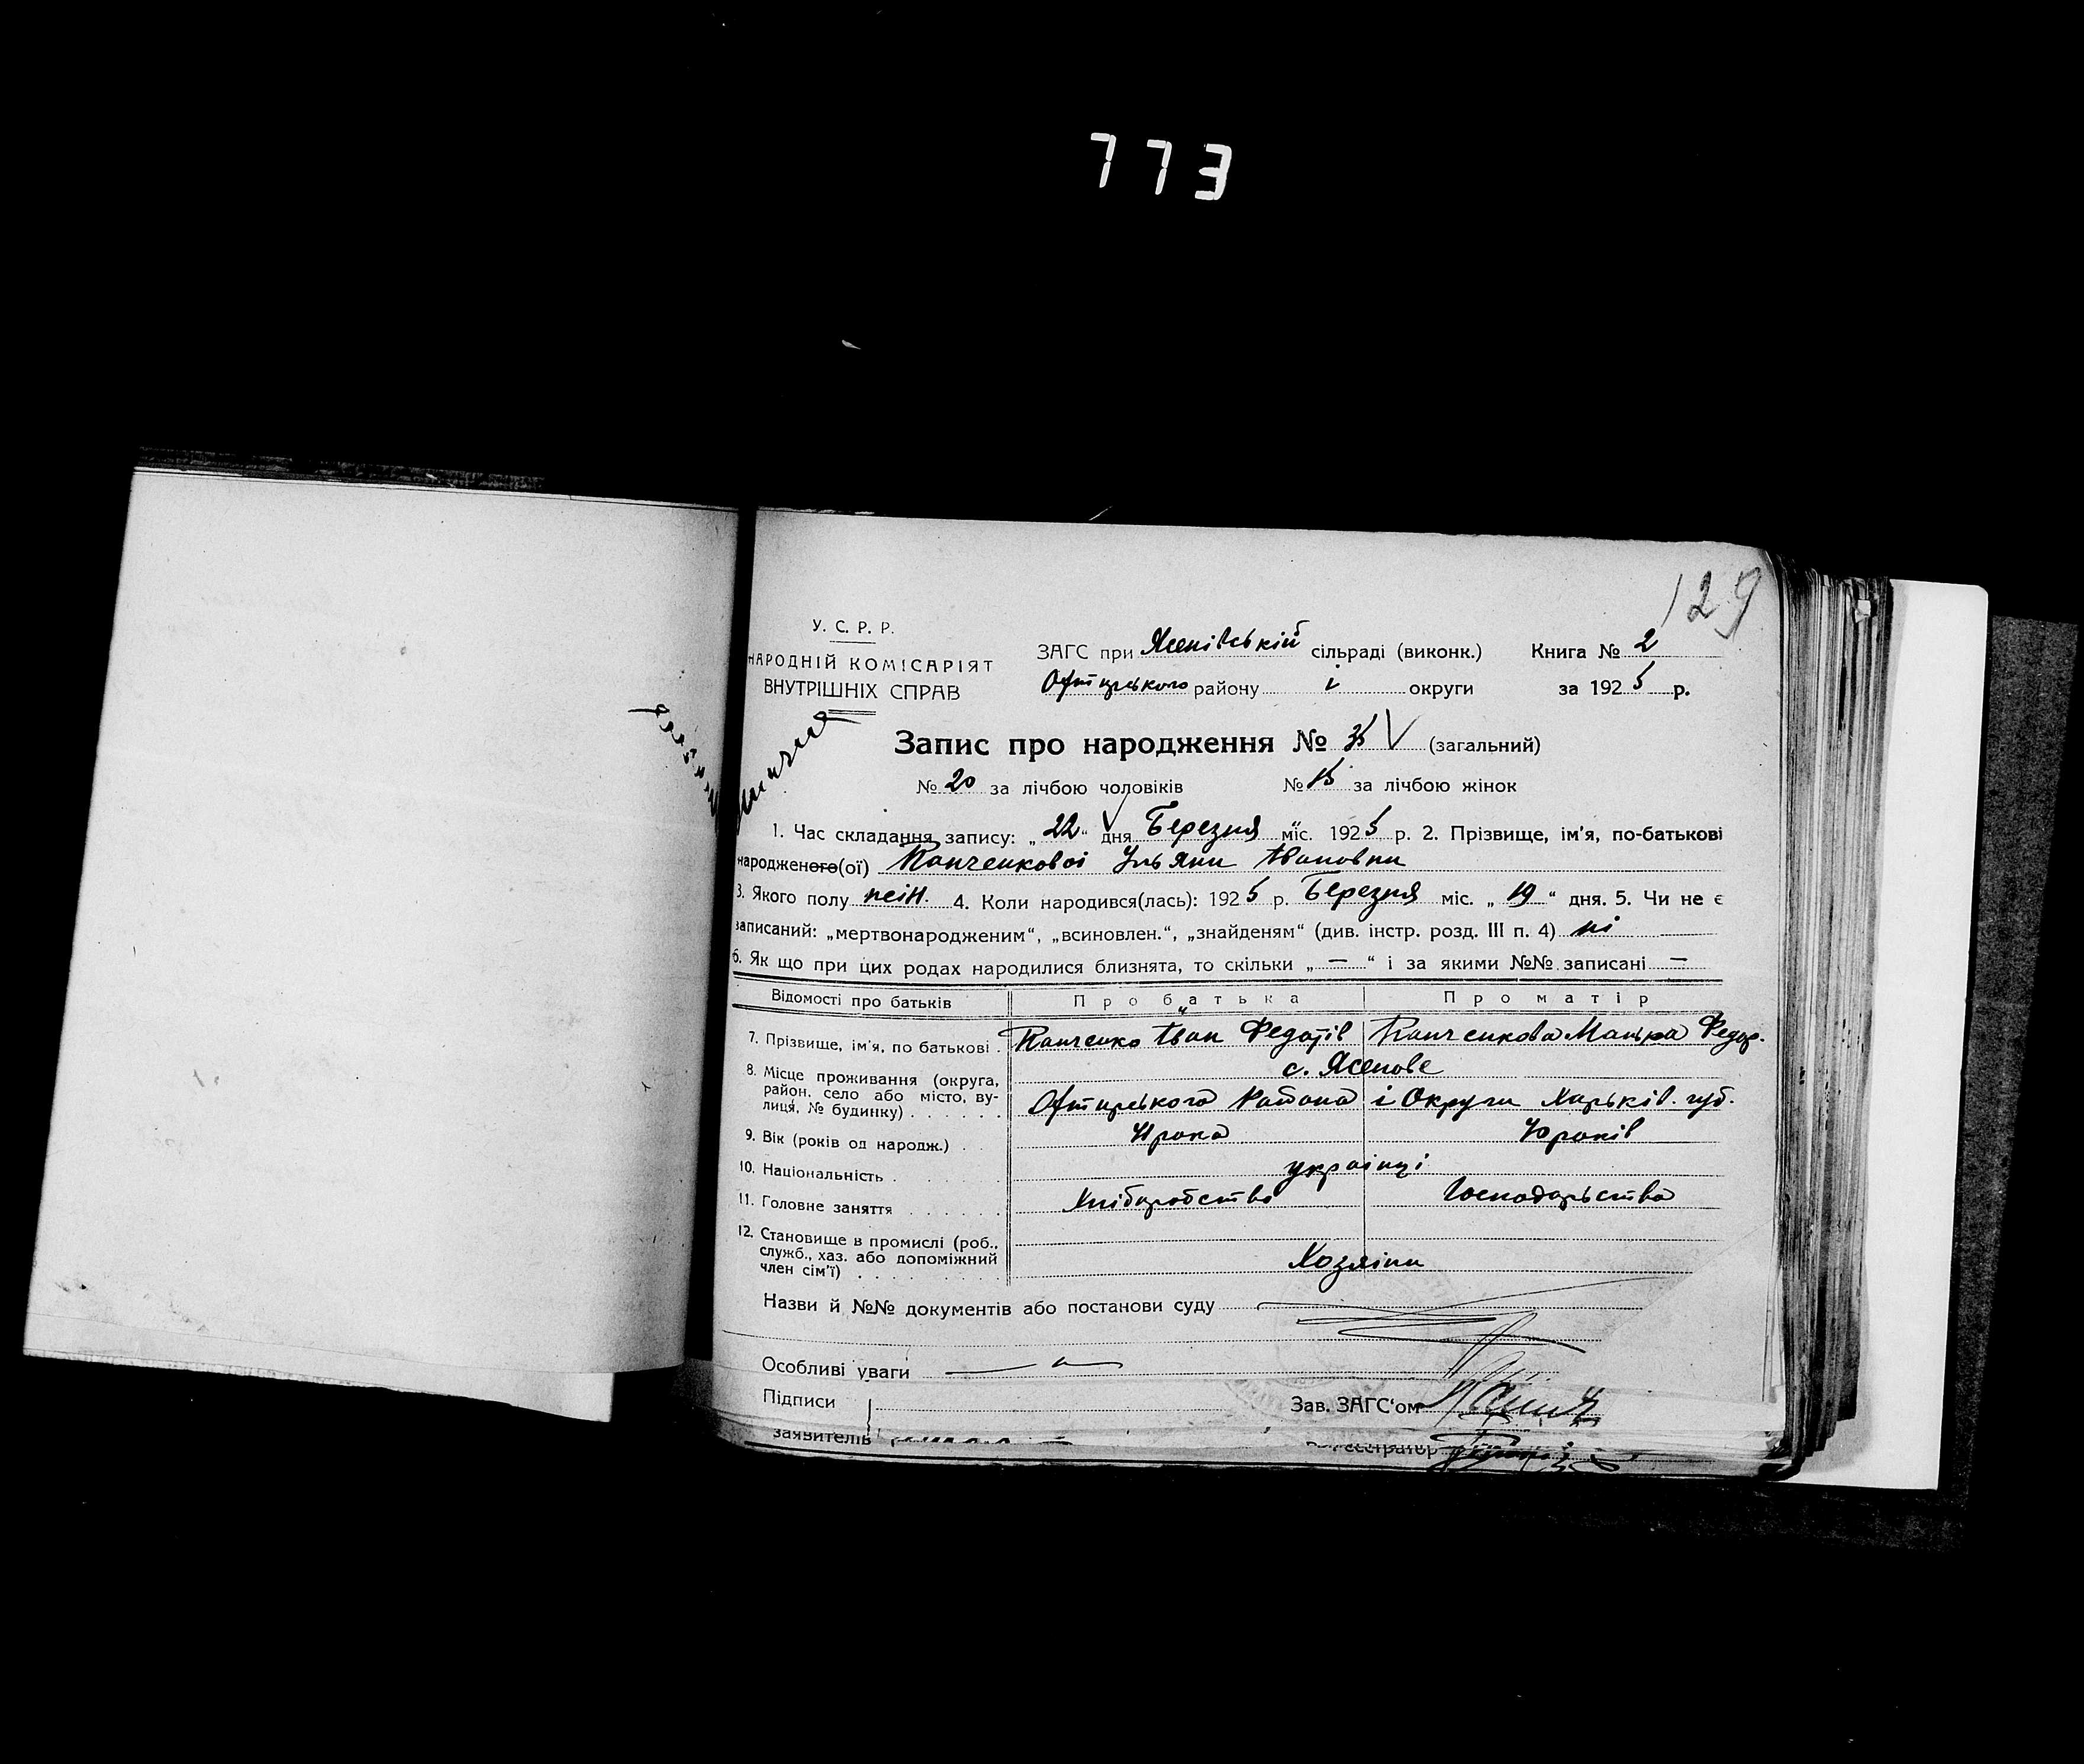 773
129
У. С. Р. Р.
НАРОДНІЙ КОМІСАРІЯТ
ВНУТРІШНІХ СПРАВ
ЗАГС при Ясенівській сільраді (виконк.) Книга № 2
Охтирського району і округи за 1925 р.
Запис про народження № 35 (загальний)
№ 20 за лічбою чоловіків № 15 за лічбою жінок
1. Час складання запису: „22“ дня Березня міс. 1925 р. 2. Прізвище, ім'я, по-батькові
народженого(ої) Панченкової Ульяни Івановни
3. Якого полу жін. 4. Коли народився(лась): 1925 р. Березня міс. „19“ дня. 5. Чи не є
записаний: „мертвонародженим“, „всиновлен.“, „знайденям“ (див. інстр. розд. III п. 4) ні
6. Як що при цих родах народилися близнята, то скільки „—“ і за якими №№ записані —
Відомості про батьків Про батька Про матір
7. Прізвище, ім'я, по батькові . Панченко Іван Федотів Панченкова Федор.
с. Ясенове
8. Місце проживання (округа,
район, село або місто, ву-
лиця, № будинку) . . . . . . Охтирського Района і Округи Харьків. губ.
9. Вік (років од народж.) . . 41 рока 40 років
10. Національність . українці
11. Головне заняття . . . . . . Хліборобство Господарьство
12. Становище в промислі (роб.,
служб., хаз. або допоміжний
член сім'ї) . . . . Хозяіни
Назви й №№ документів або постанови суду
Особливі уваги —
Підписи Зав. ЗАГС'ом
заявителів Реєстратор